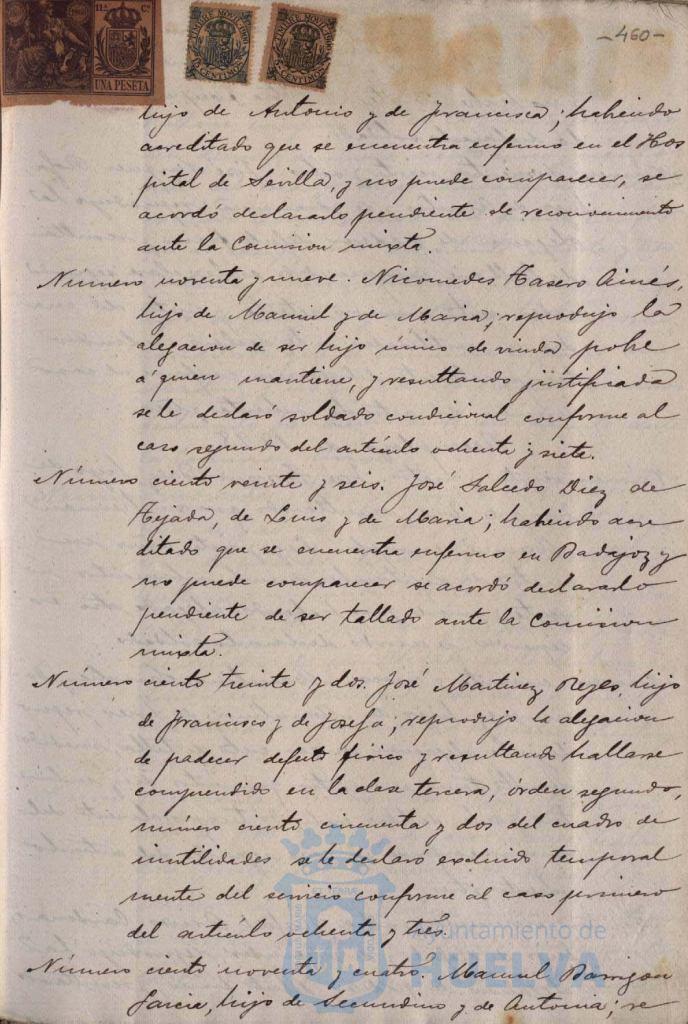 -460-
11ª Cº
UNA PESETA
TIMBRE MOVIL
TIMBRE MOVIL
hijo de Antonio y de Francisca; habiendo
acreditado que se encuentra enfermo en el Hos
pital de Sevilla, y no puede comparecer, se
acordó declararlo pendiente de reconocimiento
ante la Comision mixta.
Número noventa y nueve. Nicomedes Tasero
hijo de Manuel y de Maria; reprodujo la
alegacion de ser hijo único de viuda pobre
á quien mantiene, y resultando justificada
se le declaró soldado condicional conforme al
caso segundo del artículo ochenta y siete.
Número ciento veinte y seis. José Salcedo Diez de
Tejada, de Luis y de Maria; habiendo acre
ditado que se encuentra enfermo en Badajoz y
no puede comparecer se acordó declararlo
pendiente de ser tallado ante la Comision
mixta.
Número ciento treinta y dos. José Martinez Reyes, hijo
de Francisco y de Josefa; reprodujo la alegacion
de padecer defecto físico y resultando hallarse
comprendido en la clase tercera, órden segundo,
número ciento cincuenta y dos del cuadro de
inutilidades se le declaró excluido temporal
mente del servicio conforme al caso primero
del artículo ochenta y tres.
Número ciento noventa y cuatro. Manuel Barrigon
Garcia, hijo de Secundino y de Antonia; re
Ayuntamiento de
HUELVA